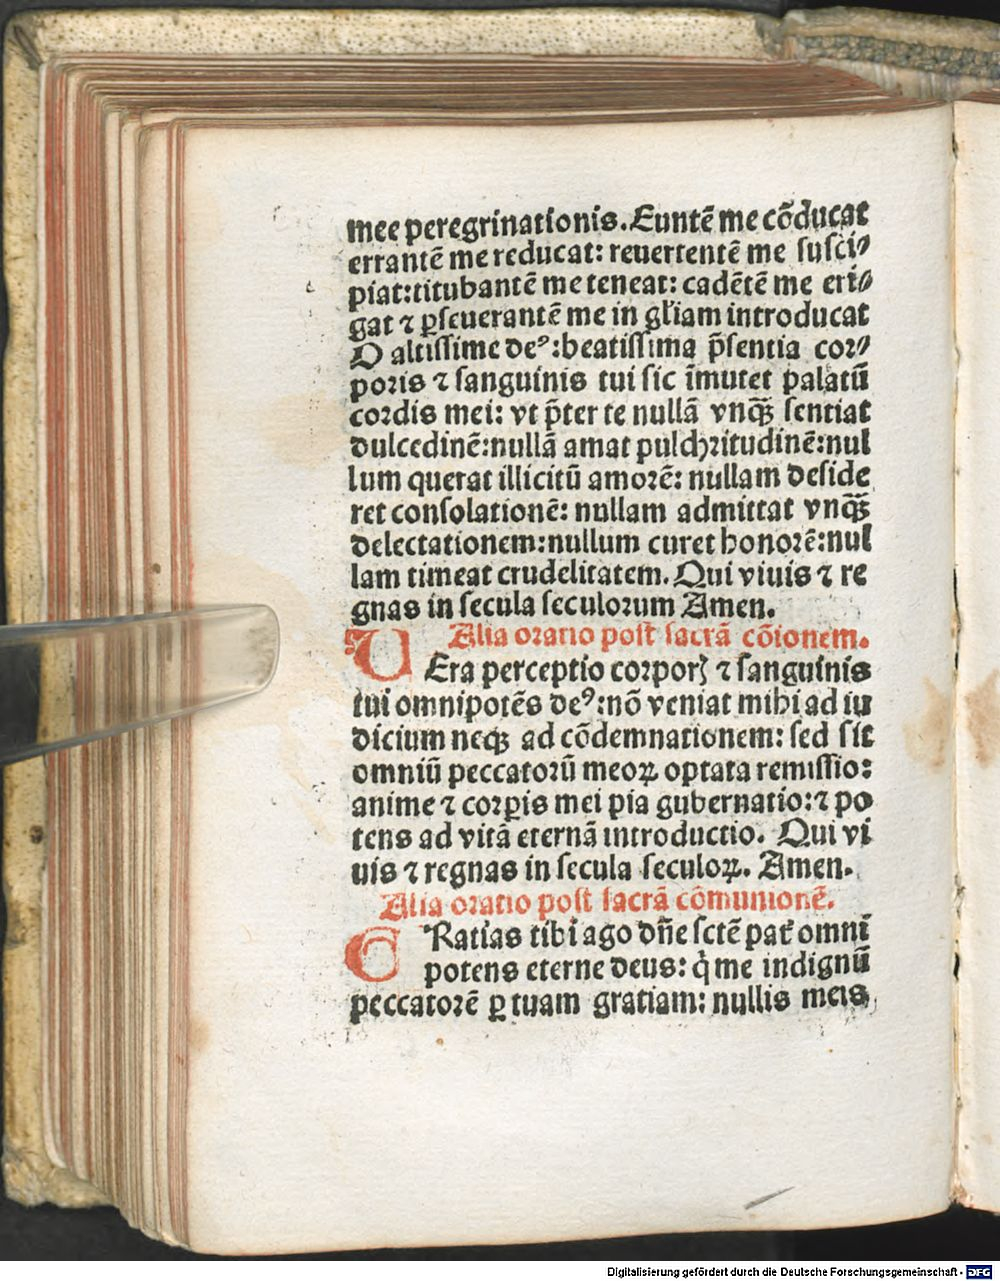 mee peregrinationis. Euntē me cōducat
errantē me reducat: reuertentē me suſci⸗
piat: titubantē me teneat: cadētē me eri⸗
gat ⁊ ꝑſeuerantē me in gl̄iam introducat
O altiſſime deꝰ: beatiſſima p̄ſentia coꝛ⸗
poris ⁊ ſanguinis tui ſic īmutet palatū
coꝛdis mei: vt p̄ter te nullā vnqꝫ̄ ſentiat
dulcedinē: nullā amat pulchꝛitudinē: nul
lum querat illicitū amoꝛē: nullam deſide
ret conſolationē: nullam admittat vnqꝫ̄
delectationem: nullum curet honoꝛē: nul
lam timeat crudelitatem. Qui viuis ⁊ re
gnas in ſecula ſeculoꝛum Amen.
Alia oꝛatio poſt ſacrā cōionem.
VEra perceptio coꝛpoꝝ ⁊ ſanguinis
tui omnipotēs deꝰ: nō veniat mihi ad iu
dicium neqꝫ ad cōdemnationem: ſed ſit
omniū peccatoꝛū meoꝝ optata remiſſio:
anime ⁊ coꝛꝑis mei pia gubernatio: ⁊ po
tens ad vitā eternā introductio. Qui vi
uis ⁊ regnas in ſecula ſeculoꝝ. Amen.
Alia oꝛatio poſt ſacrā cōmunionē.
GRatias tibi ago dn̄e ſctē pat̄ omni
potens eterne deus: q̇ me indignū
peccatoꝛē ꝑ tuam gratiam: nullis meis
Digitalisierung gefördert durch die Deutsche Forschungsgemeinschaft - DFG